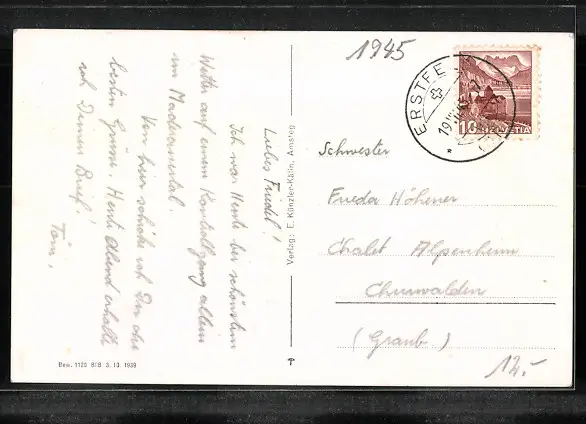 1945
ERSTFE
19.
10 HELVETIA
Liebes Friedel!
Ich war Heute bei schönstem
Wetter auf einem Kontrollgang allein
im Maderanertal.
Von hier schicke ich Dir die
besten Grüsse. Heute Abend erhalte
ich Deinen Brief!
Verlag: E. Künzler-Kälin, Amsteg
Schwester
Frieda Höhener
Chalet Alpenheim
Churwalden
(Graub.)
12.-
Bew. 1125 BRB 3. 10. 1939